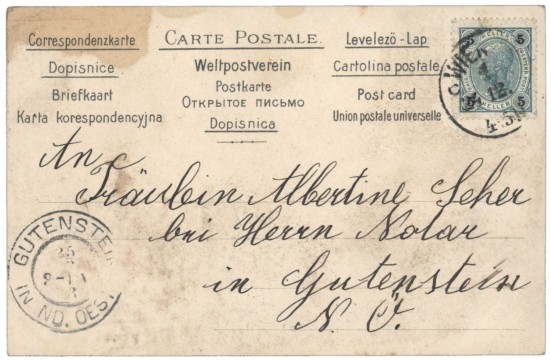 Correspondenzkarte
CARTE POSTALE.
Levelező-Lap
Dopisnice
Weltpostverein
Cartolina postale
Briefkaart
Postkarte
Post card
Karta korespondencyjna
ОТКРЫТОЕ ПИСЬМО
Union postale universelle
Dopisnica
5 5
5 5
HELLER
WIEN
12.
An
Fräulein Albertine Scher
bei Herrn Notar
in Gutenstein
N. Ö.
GUTENSTEIN
IN ND. OEST.